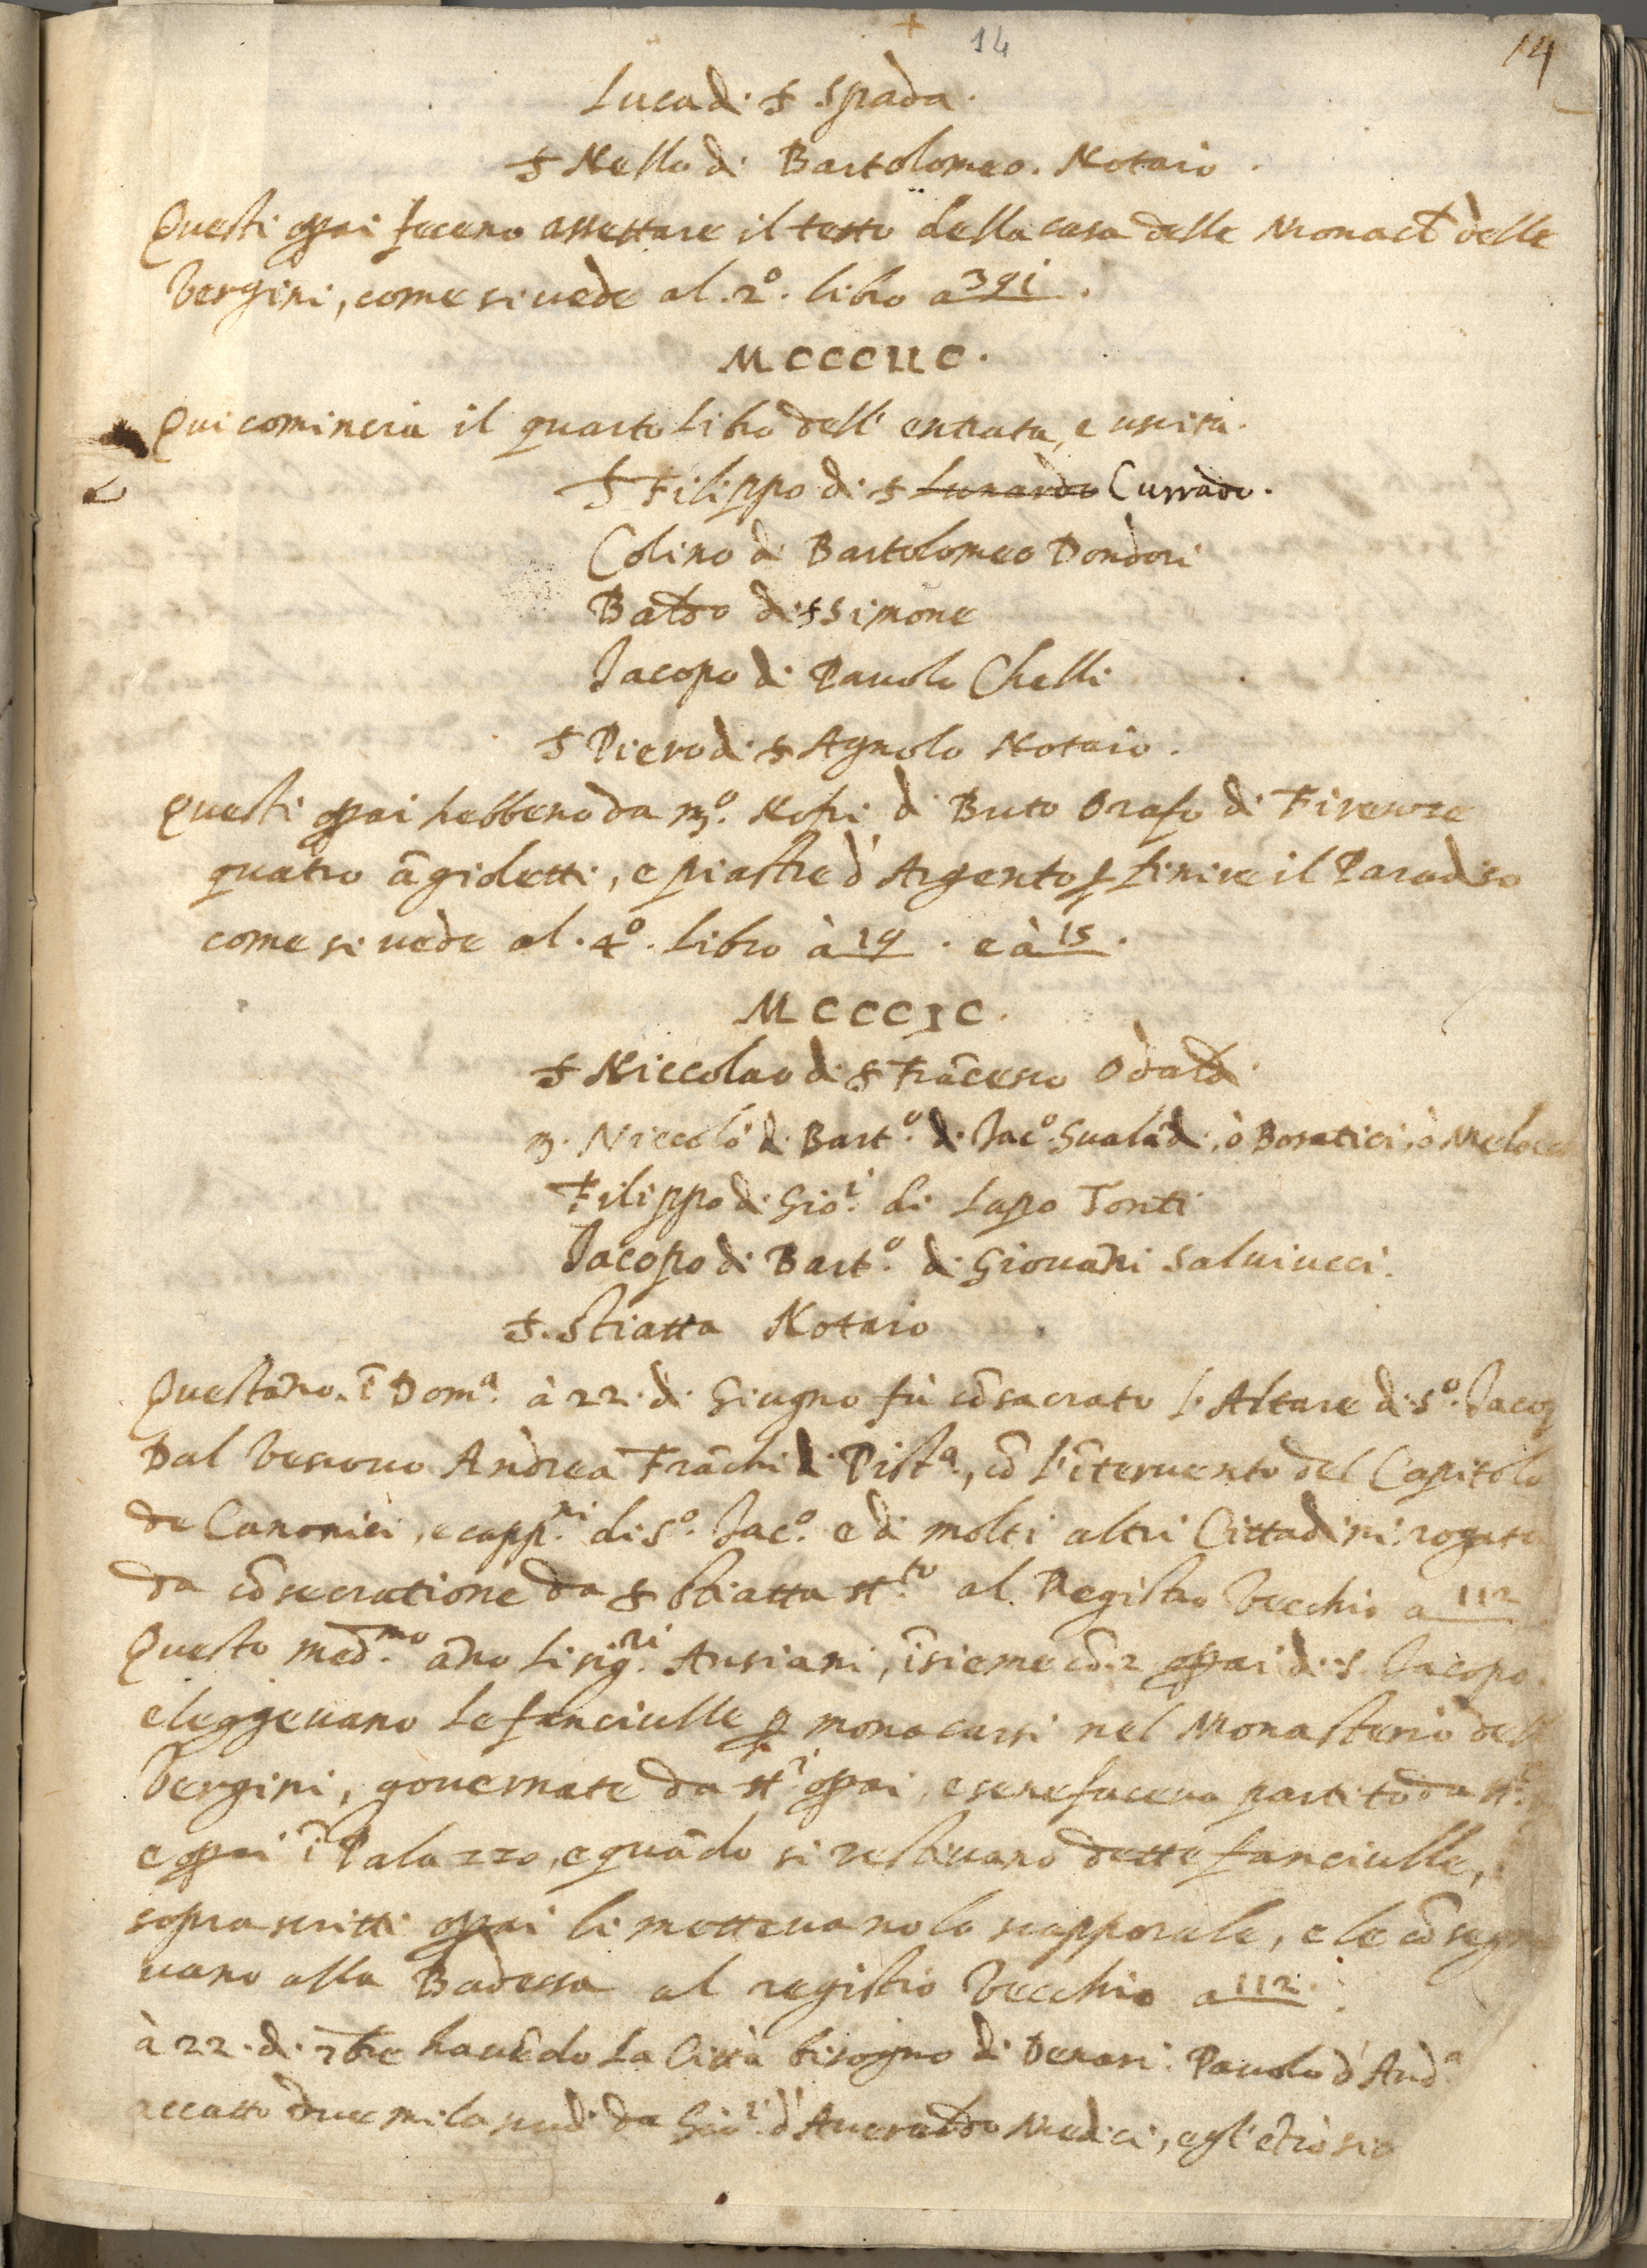 14
14
Luca di S Spada.
S Nello di Bartolomeo. Notaio.
Questi opai feceno assettare il tetto della casa delle Monache delle
Vergini, come si vede al. 2º. libro a 391.
MCCCIIC.
Qui comincia il quarto Libro dell' entrata, e uscita.
S Filippo di S Lunardo Currado.
Colino di Bartolomeo Dondori
Baldo di S Simone
Jacopo di Pauolo Chelli
S Piero di S Agnolo Notaio.
Questi opai hebbeno da mº. Nofri di Buto Orafo di Firenze
quatro āgioletti, e piastre d'Argento p finire il Paradiso
come si vede al. 4º. Libro à 19. e à 15.
MCCCIC.
S Niccolao di S Frācesco Odaldi.
m. Niccolò di Bartº. di Jacº. Gualādi, ò Boratici, ò Meloc
Filippo di Gioⁱ. di Lapo Tonti
Jacopo di Bartº. di Giouāni Saluiucci.
S. Stiatta Notaio
Quest'āno. ī Domª. à 22. di Giugno fù cōsacrato l'Altare di Sº. Jacop
Dal Vescovo Andrea Frāchi di Pistª., cō l'īteruento del Capitolo
de Canonici, e cappⁿⁱ. di Sº. Jacº. e di molti altri Cittadini: rogata
da cōsecratione da S Stiatta stᵗᵒ. al Registro Vecchio a 112
Questo medᵐᵒ. āno li sigʳⁱ. Ansiani, īsieme cō. 2 opai di S. Jacopo.
eleggeuano le fanciulle p monacarsi nel Monasterio dell
Vergini, gouernate da stⁱ. opai, e se ne faceua partito da stⁱ.
e opai ī Palazzo, e quādo si vestiuano dette fanciulle,
soprascritti opai li metteuano lo scapporale, e le cōsegn
uano alla Badessa al registro Vecchio a 112.
à 22. di 7bre hauēdo la Città bisogno di Denari: Pauolo d'Andª
accattò due mila scudi da Gioⁱ. d'Auerardo Medici, e gl'etrò sic